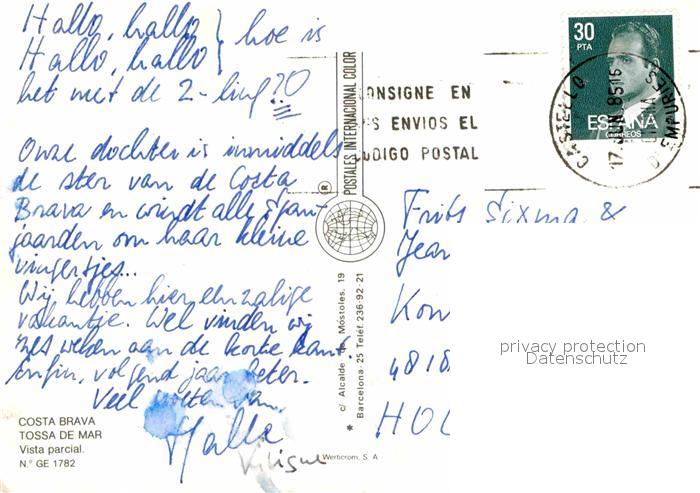 Hallo, hallo } hoe is
Hallo, hallo }
het met de 2-ling??
Onze dochter is inmiddels
de ster van de Costa
Brava en windt alle Span-
jaarden om haar kleine
vingertjes..
Wij hebben hier een zalige
vakantie. Wel vinden wij
zes weken aan de korte kant
Enfin, volgend jaar beter.
Veel groeten van,
COSTA BRAVA
TOSSA DE MAR
Vista parcial.
N.º GE 1782
POSTALES INTERNACIONAL COLOR
®
c/ Alcalde de Móstoles, 19
* Barcelona-25 Teléf. 236-92-21
Werticrom, S. A
CONSIGNE EN
ENVIOS EL
CODIGO POSTAL
30
PTA
ESPAÑA
CORREOS
CASTELLO
D'EMPURIES
17 JUN 85
Frits Sixma &
Jear
Kon
4818
HOL
privacy protection
Datenschutz